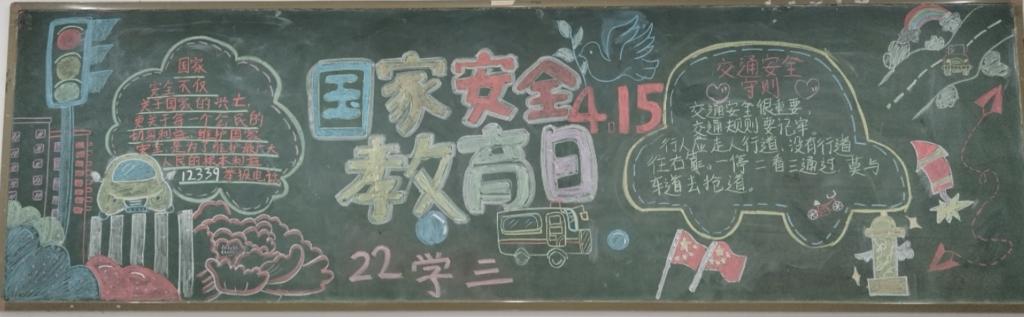 国家
安全不仅
关于国家的兴亡
更关于每一个公民的
切身利益,维护国家
安全是为了维护最广大
人民的根本利益
12339举报电话
国家安全
4.15
教育日
22学三
交通安全
守则
交通安全很重要
交通规则要记牢。
行人应走人行道,没有行道
往右靠。一停二看三通过 莫与
车道去抢道。